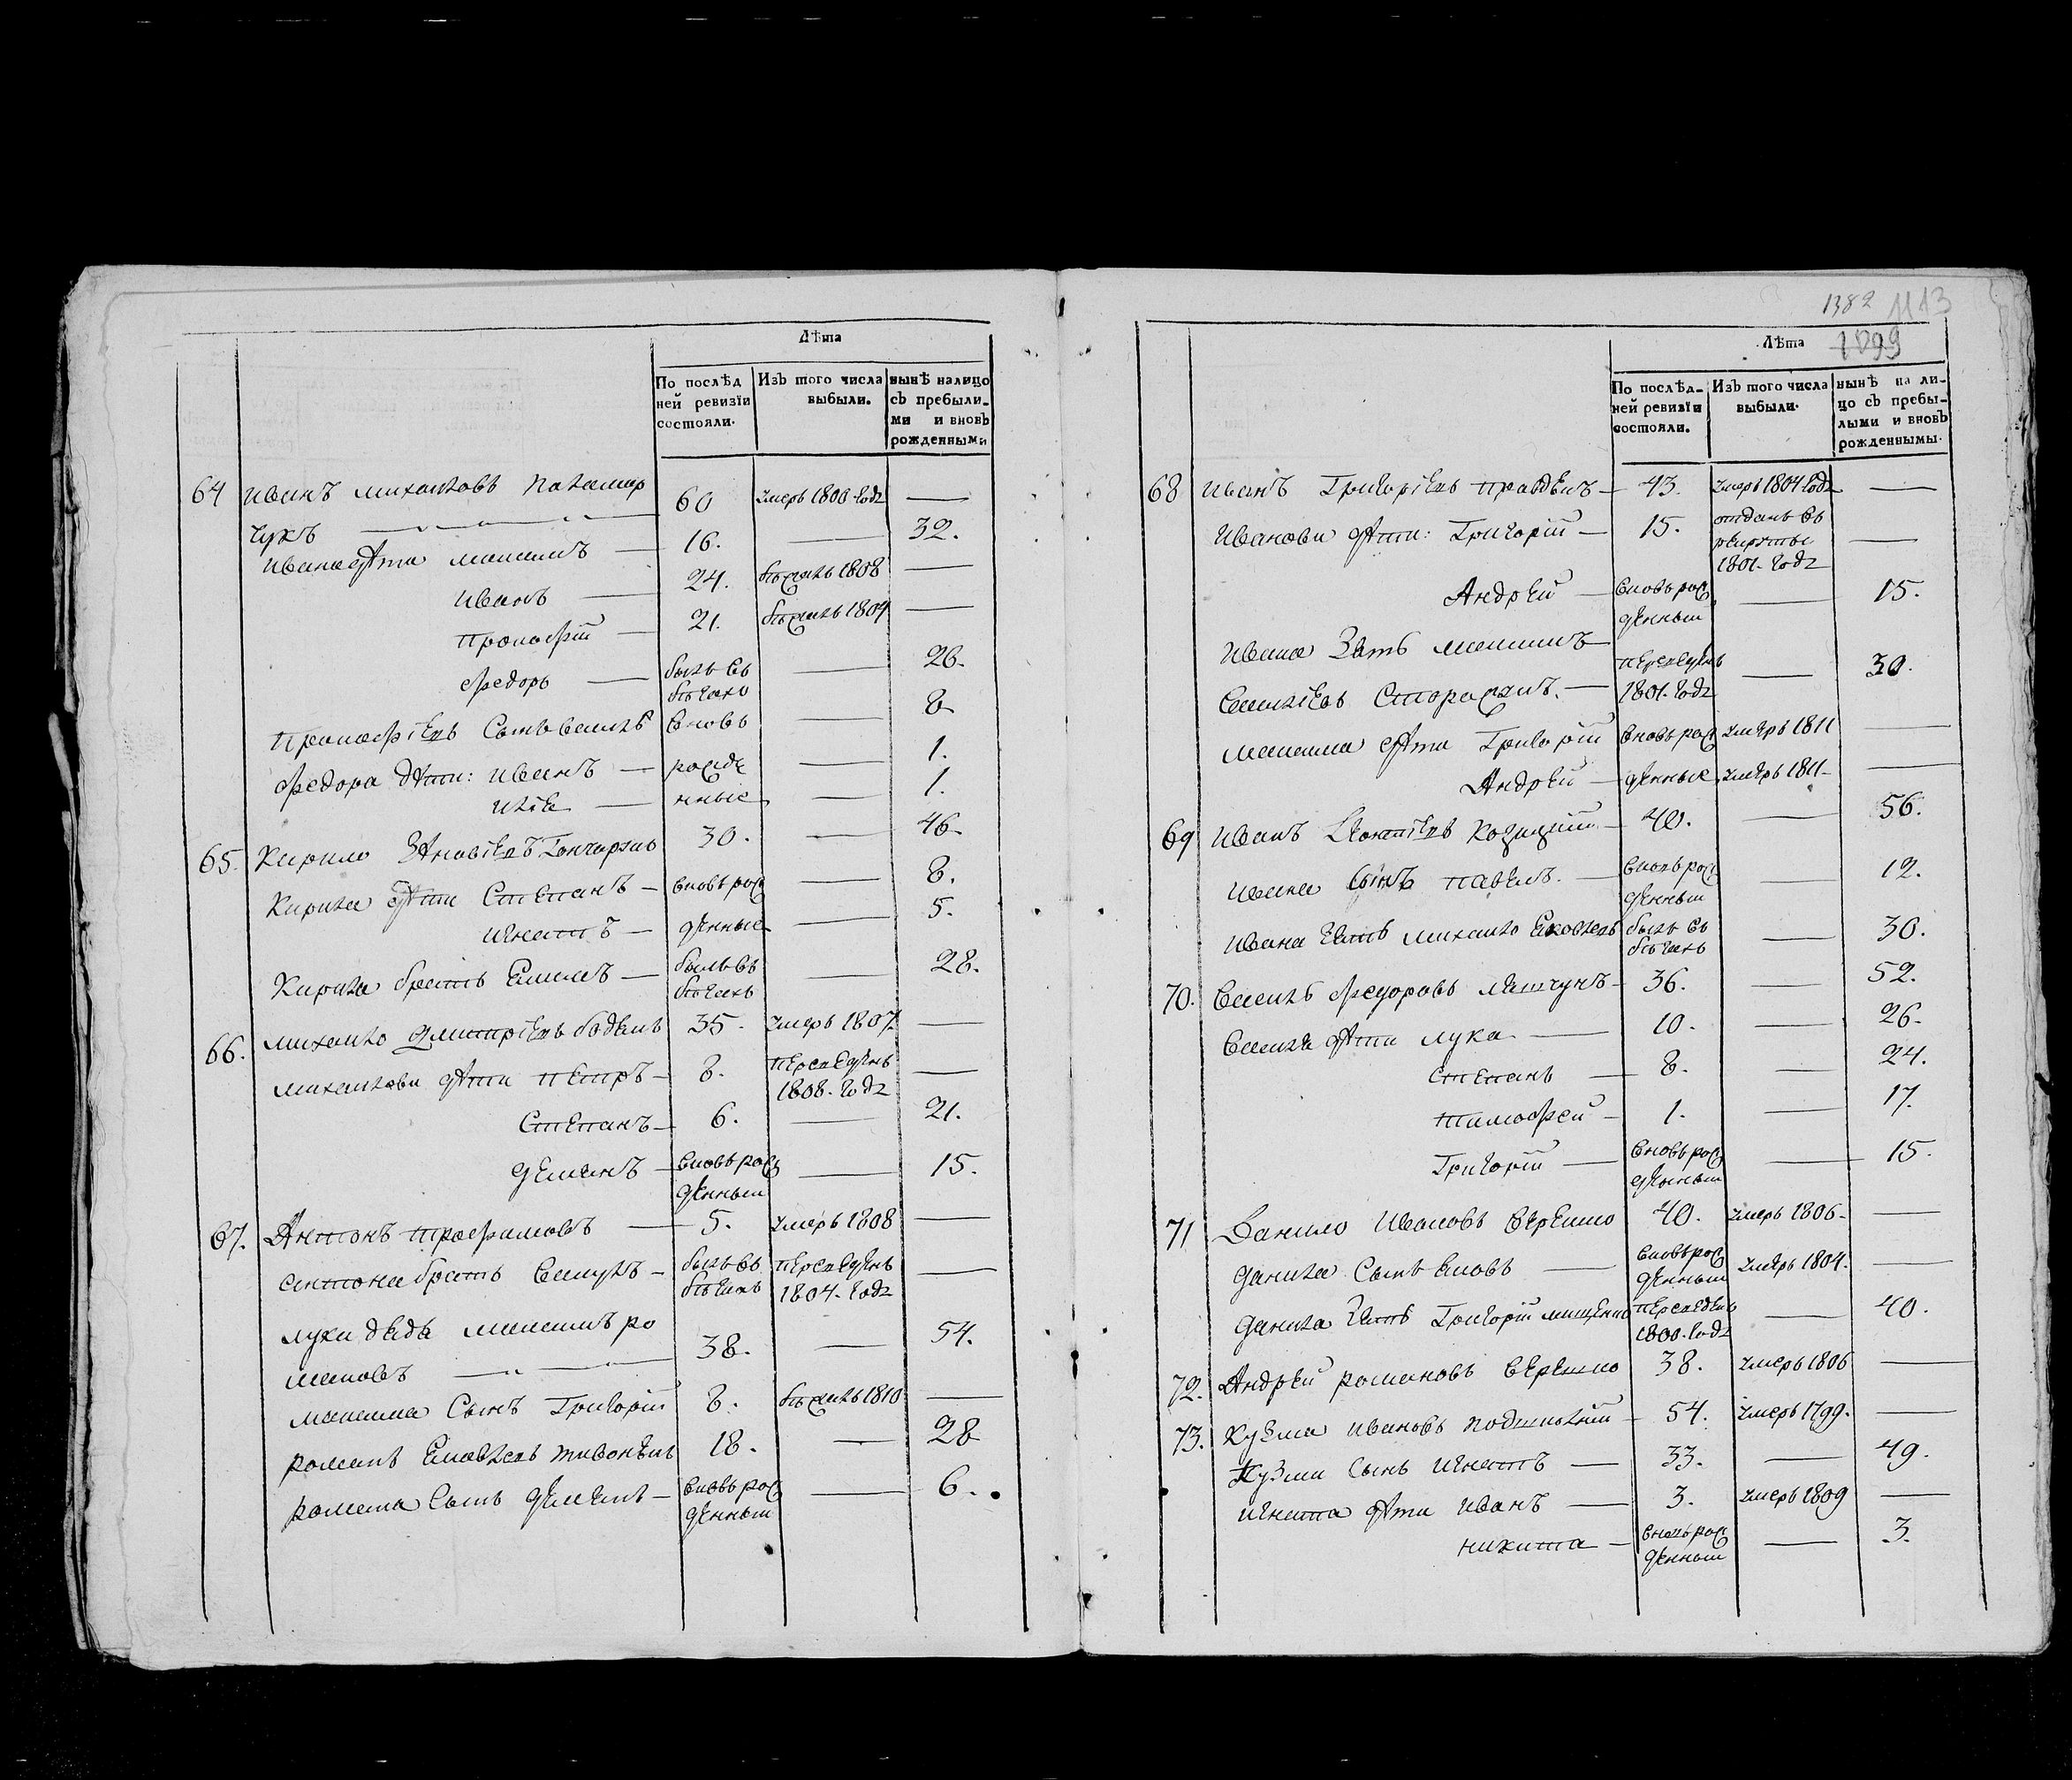 Лѣта
По послѣд
ней ревизіи
состояли.
Изъ того числа
выбыли.
нынѣ налицо
съ прeбыли-
ми и вновь
рожденными
64 иванъ михайловъ паламар
чукъ 60 умеръ 1800 году —
ивана дѣти максимъ — 16. — 32.
иванъ — 24. бѣжалъ 1808 —
прокофій — 21. бѣжалъ 1809 —
федоръ — былъ въ
бѣгахъ — 26.
прокофіевъ сынъ василь вновь — 8
федора дѣти: иванъ — рожде — 1.
илія — нные — 1.
65. Кирило 30. — 46.
Кирила дѣти Степанъ — вновь рож — 8.
игнатъ — денные — 5.
Кирила братъ — былъ въ
бѣгахъ — 28.
66. михайло дмитріевъ 35. умеръ 1807. —
михайлови дѣти петръ — 8. переведенъ
1808. году —
Степанъ — 6. — 21.
демянъ — вновь рож
денный — 15.
67. Антонъ трофимовъ — 5. умеръ 1808 —
антона братъ — былъ въ
бѣгахъ переведенъ
1804. году —
луки дѣдъ максимъ ро
мановъ 38. — 54.
максима Сынъ Григорій 8. бѣжалъ 1810 —
романъ 18. — 28
романа Сынъ — вновь рож
денный — 6.
1382 1113
1099
Лѣта
По послѣд-
ней ревизіи
состояли.
Изъ того числа
выбыли.
нынѣ на ли-
цо съ прeбы-
лыми и вновь
рожденнымы.
68 иванъ Григоріевъ — 43. умеръ 1804 году —
Иванови дѣти: Григорій — 15. отданъ въ
рекруты
1801. году —
Андрей — вновь рож
денный — 15.
ивана Зять максимъ —
переведенъ
1801. году — 30.
максима дѣти Григорій вновь рож умеръ 1811 —
Андрей — денные умеръ 1811 —
69 иванъ 40. — 56.
ивана сынъ павелъ. — вновь рож
денный — 12.
ивана зять михайло яковлевъ былъ въ
бѣгахъ — 30.
70. василь федоровъ — 36. — 52.
василя дѣти лука — 10. — 26.
степанъ — 8. — 24.
тимофей — 1. — 17.
Григорій — вновь рож
денный — 15.
71 Данило ивановъ верешко 40. умеръ 1806 —
данила сынъ яковъ — вновь рож
денный умеръ 1804. —
данила Зять Григорій мищенко переведенъ
1800. году — 40.
72. Андрей романовъ верешко 38. умеръ 1806 —
73. кузма ивановъ — 54. умеръ 1799. —
кузми Сынъ игнатъ — 33. — 49.
игната дѣти иванъ — 3. умеръ 1809 —
никита — вновь рож
денный — 3.